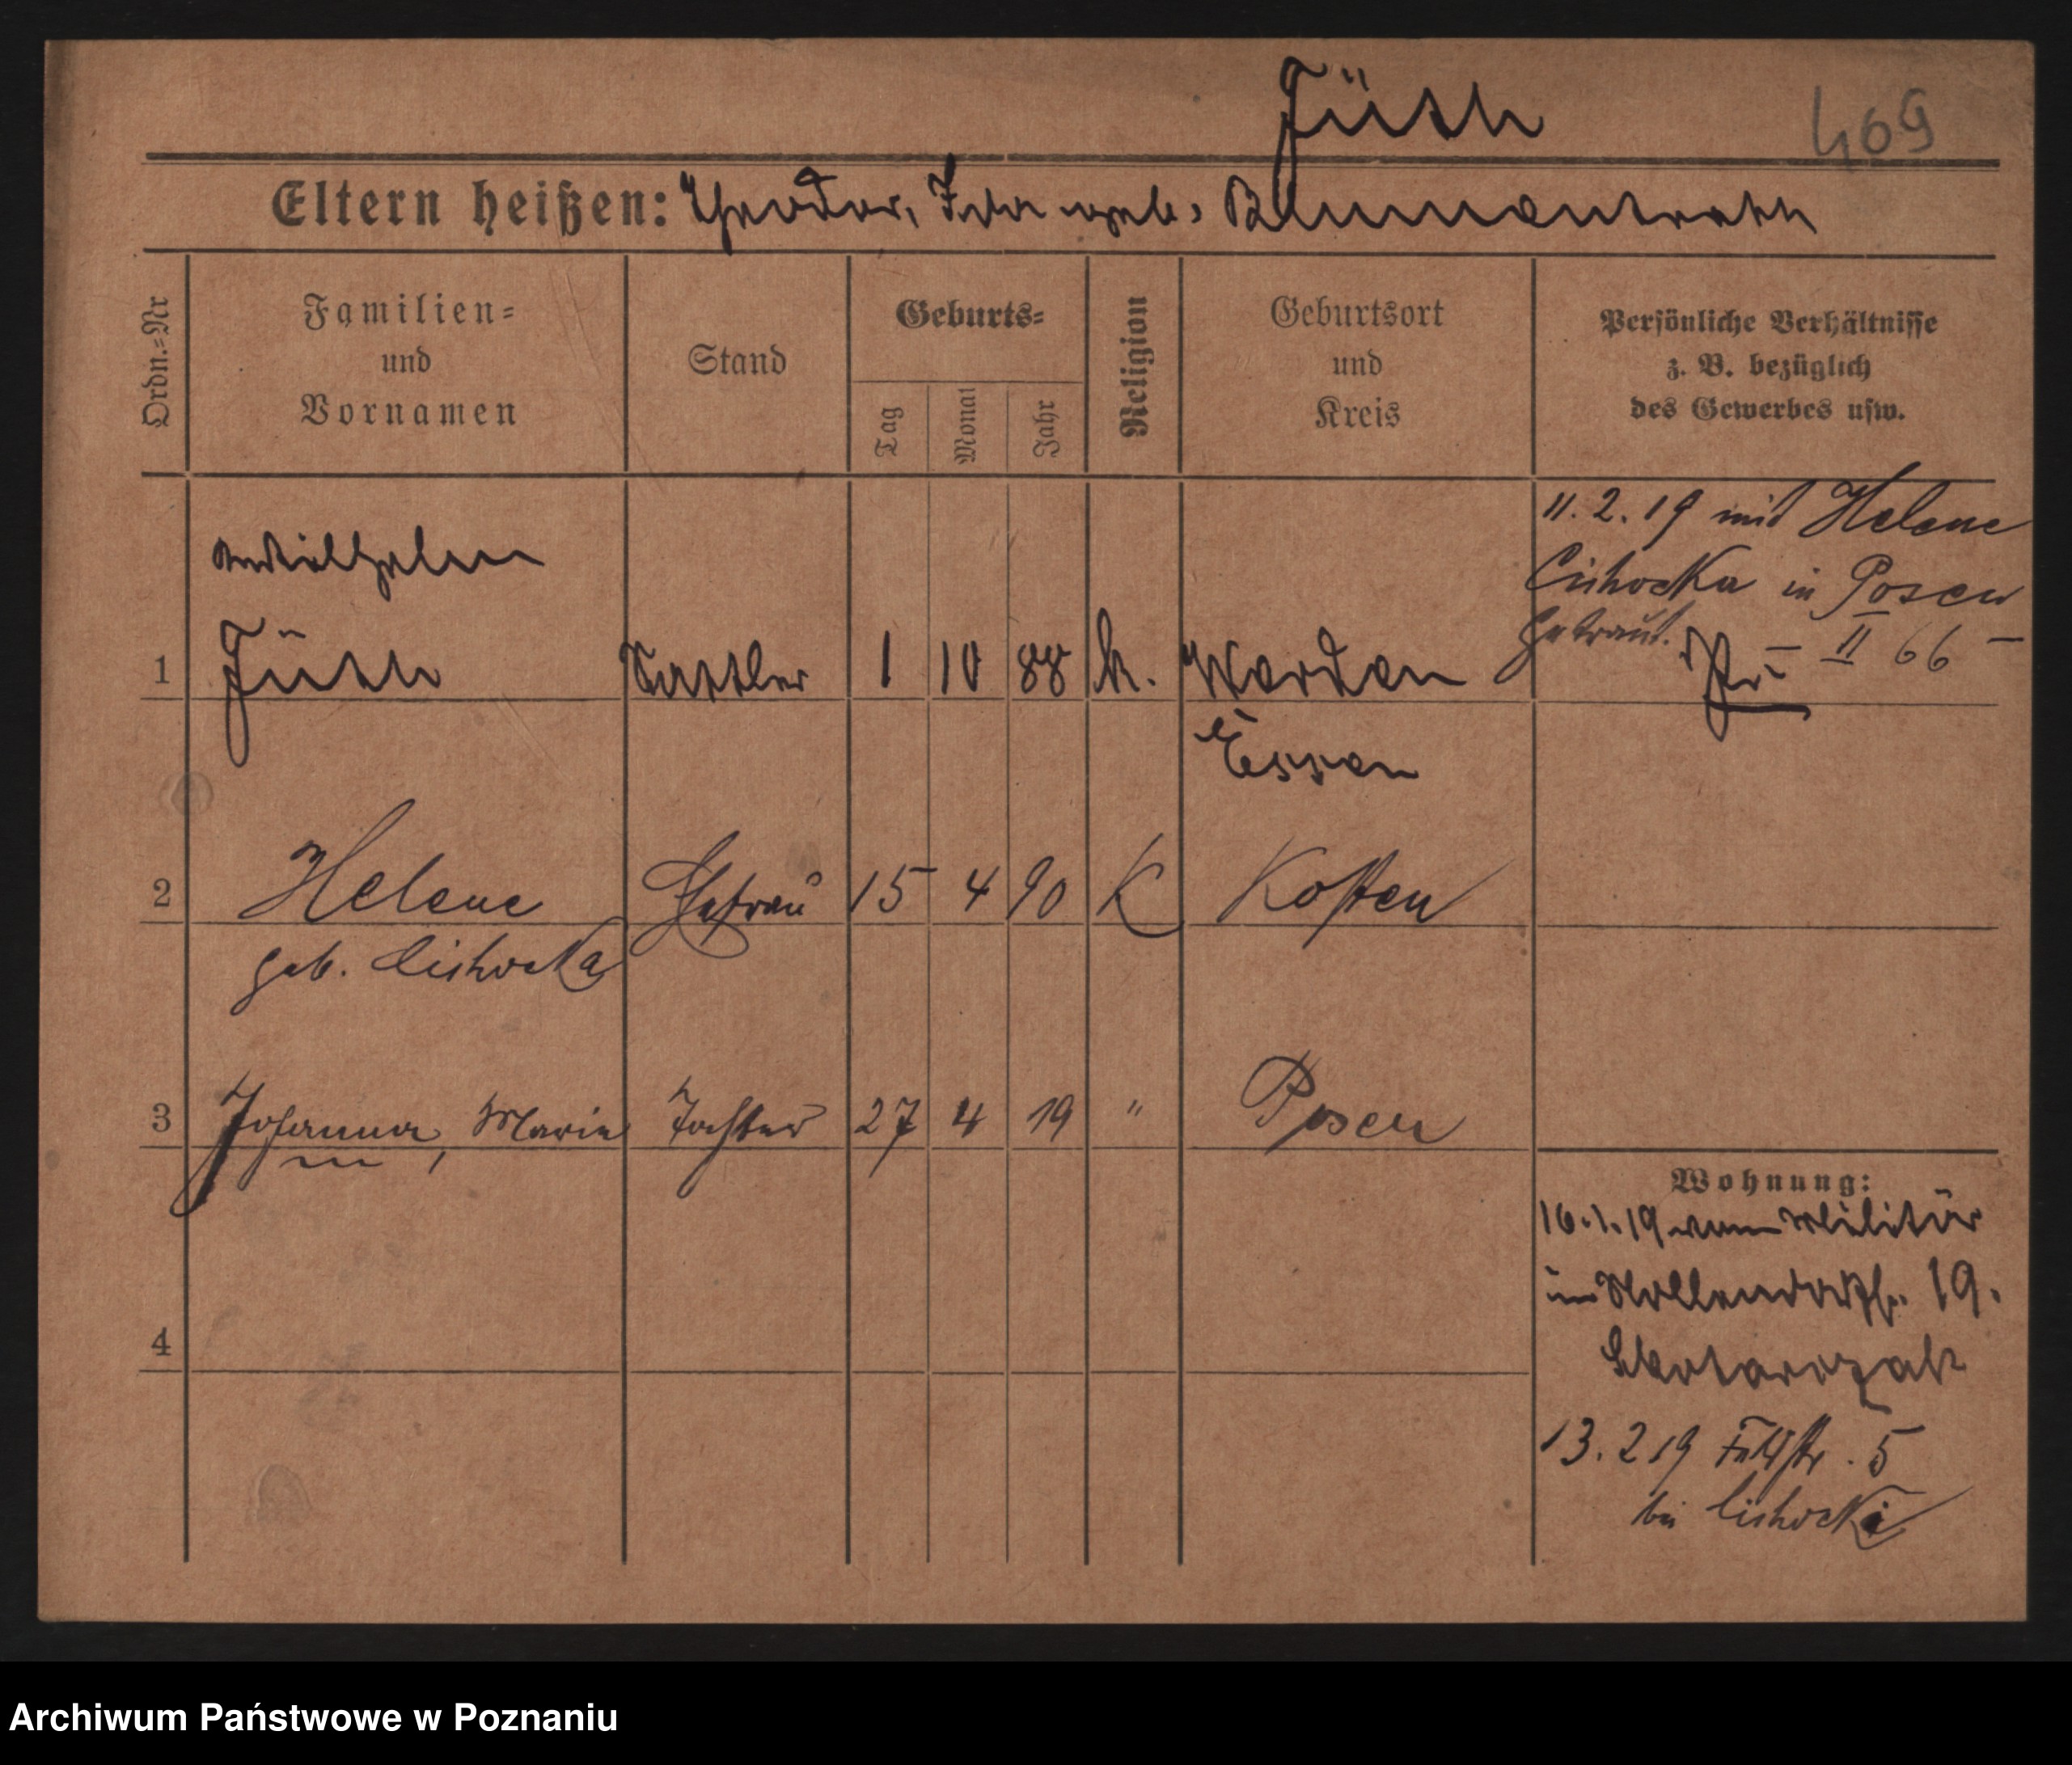 Jüth
409
Eltern heißen: Theodor, Ida geb. Blumenrath
Ordn.=Nr
Familien=
und
Vornamen
Stand
Geburts=
Tag
Monat
Jahr
Religion
Geburtsort
und
Kreis
Persönliche Verhältnisse
z. B. bezüglich
des Gewerbes usw.
11.2.19 mit Helene
Cichocka in Posen
getraut. – II 66 –
Wilhelm
1 Jüth Sattler 1 10 88 k. Werden
Essen
2 Helene Ehefrau 15 4 90 K Kosten
geb. Cichocka
3 Johanna, Marie Tochter 27 4 19 " Posen
4
Wohnung:
16.1.19 vom Militär
in Nollendorfstr. 19.
13.2 19 Feldstr. 5
bei Cichocki
Archiwum Państwowe w Poznaniu